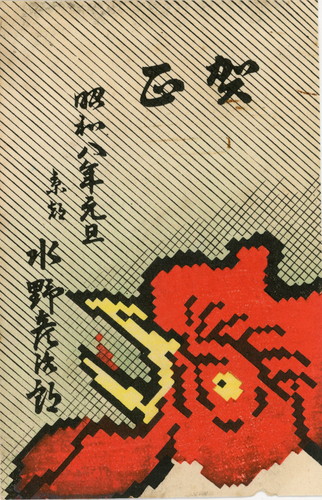 賀正
昭和八年元旦
京都
水野彦治郎